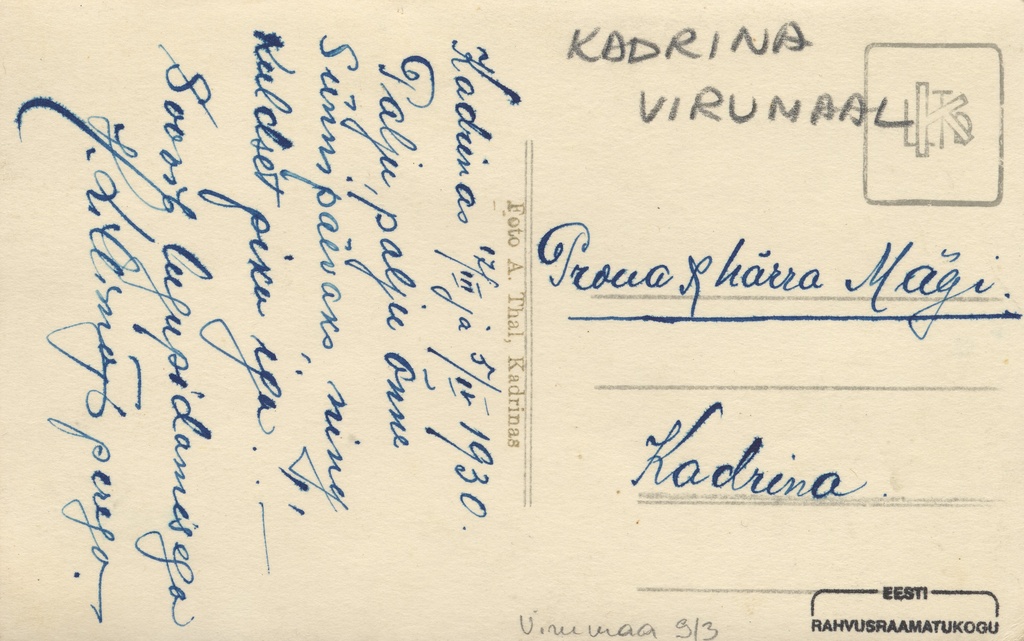 KADRINA
VIRUMAAL
Kadrinas 17/III ja 5/IV 1930.
Palju, palju õnne
Sünnipäevaks, ning
kuldset pikka iga.
Soovib lugupidamisega
perega.
Foto A. Thal, Kadrinas
Proua & härra Mägi.
Kadrina
Virumaa 9/3
EESTI
RAHVUSRAAMATUKOGU